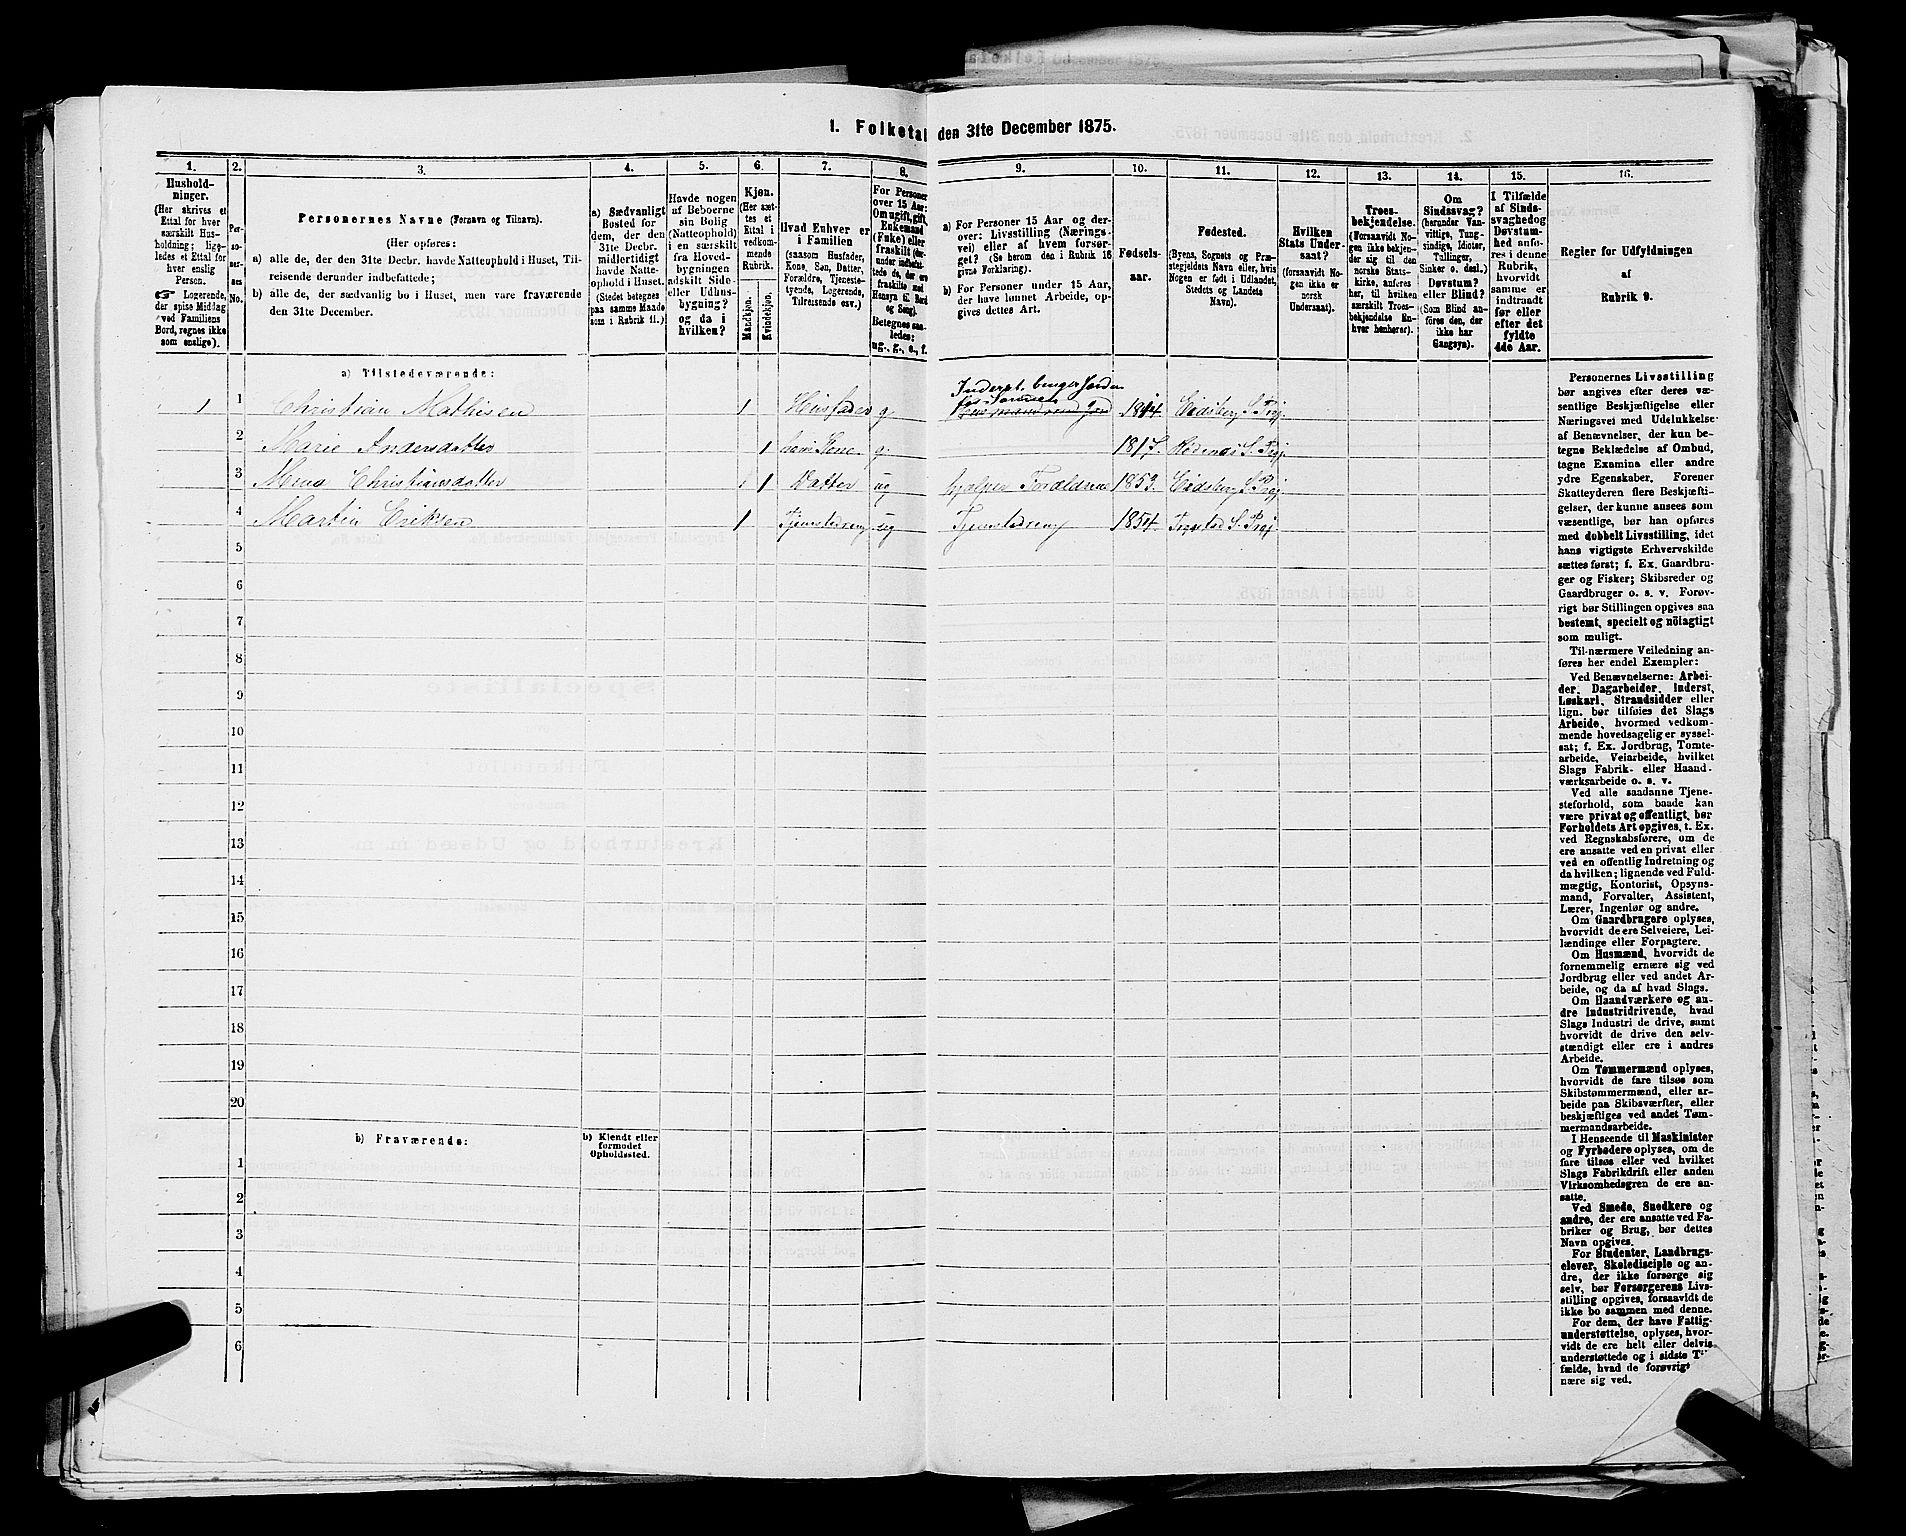 1. Folketal den 31te December 1875.
1.
Hushold-
ninger.
(Her skrives et
Ettal for hver
særskilt Hus-
holdning; lige-
ledes et Ettal for
hver enslig
Person.
☞ Logerende,
der spise Middag
ved Familiens
Bord, regnes ikke
som enslige).
2.
Per-
so-
ner-
nes
No.
3.
Personernes Navne (Fornavn og Tilnavn).
(Her opføres:
a) alle de, der den 31te Decbr. havde Natteophold i Huset, Til-
reisende derunder indbefattede;
b) alle de, der sædvanlig bo i Huset, men vare fraværende
den 31te December.
4.
a) Sædvanligt
Bosted for
dem, der den
31te Decbr.
midlertidigt
havde Natte-
ophold i Huset.
(Stedet betegnes
paa samme Maade
som i Rubrik 11.)
5.
Havde nogen
af Beboerne
sin Bolig
(Natteophold)
i en særskilt
fra Hoved-
bygningen
adskilt Side-
eller Udhus-
bygning?
og da i
hvilken?
6.
Kjøn.
(Her sæt-
tes et
Ettal i
vedkom-
mende
Rubrik.
Mandkjøn.
Kvindekjøn.
7.
Hvad Enhver er
i Familien
(saasom Husfader,
Kone, Søn, Datter,
Forældre, Tjeneste-
tyende, Logerende,
Tilreisende osv.)
8.
For Personer
over 15 Aar:
Om ugift, gift,
Enkemand
(Enke) eller
fraskilt
Betegnes saa-
ledes:
ug., g., e., f.
9.
a) For Personer 15 Aar og der-
over: Livsstilling (Nærings-
vei) eller af hvem forsør-
get? (Se herom den i Rubrik 16
givne Forklaring).
b) For Personer under 15 Aar,
der have lønnet Arbeide, op-
gives dettes Art.
10.
Fødsels-
aar.
11.
Fødested.
(Byens, Sognets og Præ-
stegjeldets Navn eller, hvis
Nogen er født i Udlandet,
Stedets og Landets
Navn).
12.
Hvilken
Stats Under-
saat?
(forsaavidt No-
gen ikke er
norsk
Undersaat).
13.
Troes-
bekjendelse.
(Forsaavidt No-
gen ikke bekjen-
der sig til den
norske Stats-
kirke, anføres
her, til hvilken
særskilt Troes-
bekjendelse En-
hver henhører).
14.
Om
Sindssvag?
(herunder Van-
vittige, Tung-
sindige, Idioter,
Tullinger,
Sinker o. desl.)
Døvstum?
eller Blind?
(Som Blind an-
føres den, der
ikke har
Gangsyn).
15.
I Tilfælde
af Sinds-
svaghed og
Døvstum-
hed anfø-
res i denne
Rubrik,
hvorvidt
samme er
indtraadt
før eller
efter det
fyldte
4de Aar.
16.
Regler for Udfyldningen
af
Rubrik 9.
a) Tilstedeværende:
1 1 Christian Mathisen 1 Husfader g. Inderst, bruger Jorden for Sønnen Husmand med Jord 1814. Eidsberg S. Prgj.
2 Marie Andersdatter 1 hans Kone g. 1817. Rødenes S. Prgj.
3 Mina Christiansdatter 1 Datter ug hjælper Forældrene 1853. Eidsberg S. Prgj
4 Martin Eriksen 1 Tjenestedreng ug Tjenestedreng 1854. Trøgstad S. Prgj.
5
6
7
8
9
10
11
12
13
14
15
16
17
18
19
20
b) Fraværende:
b) Kjendt eller
formodet
Opholdssted.
1
2
3
4
5
6
Personernes Livsstilling
bør angives efter deres væ-
sentlige Beskjæftigelse eller
Næringsvei med Udelukkelse
af Benævnelser, der kun be-
tegne Beklædelse af Ombud,
tagne Examina eller andre
ydre Egenskaber. Forener
Skatteyderen flere Beskjæfti-
gelser, der kunne ansees som
væsentlige, bør han opføres
med dobbelt Livsstilling, idet
hans vigtigste Erhvervskilde
sættes først; f. Ex. Gaardbru-
ger og Fisker; Skibsreder og
Gaardbruger o. s. v. Forøv-
rigt bør Stillingen opgives saa
bestemt, specielt og nöiagtigt
som muligt.
Til nærmere Veiledning an-
føres her endel Exempler:
Ved Benævnelserne: Arbei-
der, Dagarbeider, Inderst,
Løskarl, Strandsidder eller
lign. bør tilføies det Slags
Arbeide, hvormed vedkom-
mende hovedsagelig er syssel-
sat; f. Ex. Jordbrug, Tomte-
arbeide, Veiarbeide, hvilket
Slags Fabrik- eller Haand-
værksarbeide o. s. v.
Ved alle saadanne Tjene-
steforhold, som baade kan
være privat og offentligt, bør
Forholdets Art opgives, t. Ex.
ved Regnskabsførere, om de
ere ansatte ved en privat eller
ved en offentlig Indretning og
da hvilken; lignende ved Fuld-
mægtig, Kontorist, Opsyns-
mand, Forvalter, Assistent,
Lærer, Ingeniør og andre.
Om Gaardbrugere oplyses,
hvorvidt de ere Selveiere, Lei-
lændinge eller Forpagtere.
Om Husmænd, hvorvidt de
fornemmelig ernære sig ved
Jordbrug eller ved andet Ar-
beide, og da af hvad Slags.
Om Haandværkere og an-
dre Industridrivende, hvad
Slags Industri de drive, samt
hvorvidt de drive den selv-
stændigt eller ere i andres
Arbeide.
Om Tømmermænd oplyses,
hvorvidt de fare tilsøs som
Skibstømmermænd, eller ar-
beide paa Skibsværfter, eller
beskjæftiges ved andet Tøm-
mermandsarbeide.
I Henseende til Maskinister
og Fyrbødere oplyses, om de
fare tilsøs eller ved hvilket
Slags Fabrikdrift eller anden
Virksomhedsgren de ere an-
satte.
Ved Smede, Snedkere og
andre, der ere ansatte ved Fa-
briker og Brug, bør dettes
Navn opgives.
For Studenter, Landbrugs-
elever, Skoledisciple og an-
dre, der ikke forsørge sig
selv, bør Forsørgerens Livs-
stilling opgives, forsaavidt de
ikke bo sammen med denne.
For dem, der have Fattig-
understøttelse, oplyses, hvor-
vidt de ere helt eller delvis
understøttede og i sidste Til-
fælde, hvad de forøvrigt
nære sig ved.